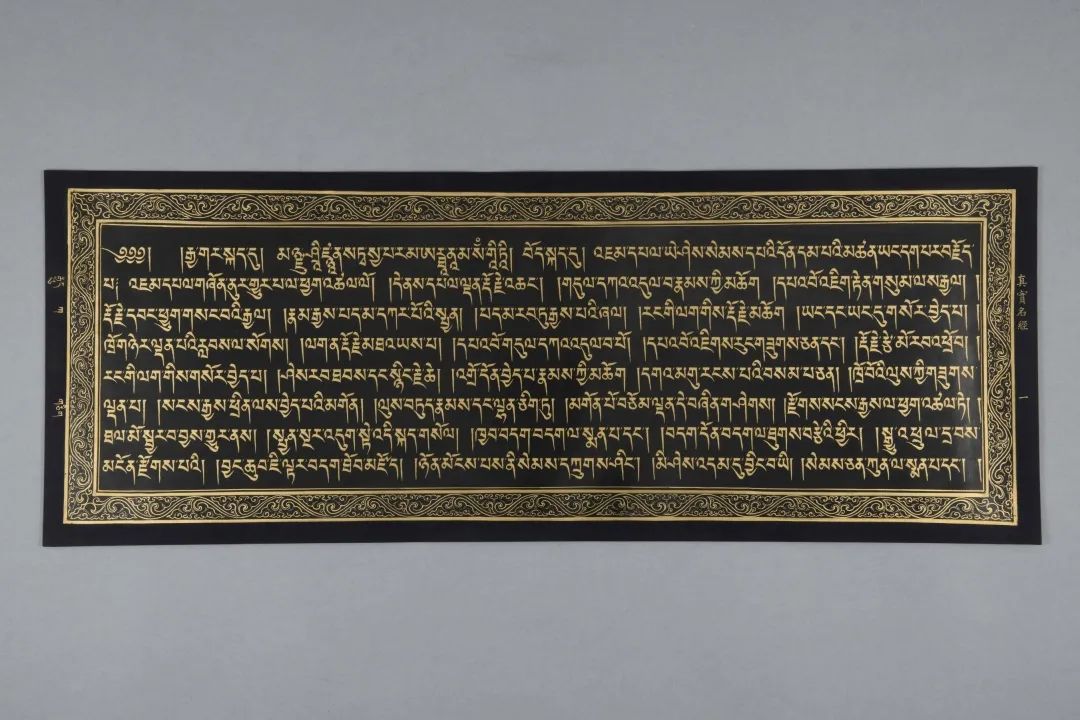 ༄༅༅། །རྒྱ་གར་སྐད་དུ། མཉྫུ་ཤྲཱི་ཛྙཱན་སཏྭ་སྱ་པརམ་ཨརྠ་ནཱམ་སཾ་གཱི་ཏི། བོད་སྐད་དུ། འཇམ་དཔལ་ཡེ་ཤེས་སེམས་དཔའི་དོན་དམ་པའི་མཚན་ཡང་དག་པར་བརྗོད་
པ། འཇམ་དཔལ་གཞོན་ནུར་གྱུར་པ་ལ་ཕྱག་འཚལ་ལོ། །དེ་ནས་དཔལ་ལྡན་རྡོ་རྗེ་འཆང་། །གདུལ་དཀའ་འདུལ་བ་རྣམས་ཀྱི་མཆོག །དཔའ་བོ་འཇིག་རྟེན་གསུམ་ལས་རྒྱལ།
རྡོ་རྗེ་དབང་ཕྱུག་གསང་བའི་རྒྱལ། །རྣམ་རྒྱས་པདྨ་དཀར་པོའི་སྤྱན། །པདྨ་རབ་ཏུ་རྒྱས་པའི་ཞལ། །རང་གི་ལག་གིས་རྡོ་རྗེ་མཆོག །ཡང་དང་ཡང་དུ་གསོར་བྱེད་པ།
ཁྲོ་གཉེར་ལྡན་པའི་རླབས་ལ་སོགས། །ལག་ན་རྡོ་རྗེ་མཐའ་ཡས་པ། །དཔའ་བོ་གདུལ་དཀའ་འདུལ་བ་པོ། །དཔའ་བོ་འཇིགས་རུང་གཟུགས་ཅན་དང་། །རྡོ་རྗེ་རྩེ་མོ་རབ་འཕྲོ་བ།
རང་གི་ལག་གིས་གསོར་བྱེད་པ། །ཤེས་རབ་ཐབས་དང་སྙིང་རྗེ་ཆེ། །འགྲོ་དོན་བྱེད་པ་རྣམས་ཀྱི་མཆོག །དགའ་མགུ་རངས་པའི་བསམ་པ་ཅན། །ཁྲོ་བོའི་ལུས་ཀྱི་གཟུགས་
ལྡན་པ། །སངས་རྒྱས་ཕྲིན་ལས་བྱེད་པའི་མགོན། །ལུས་བཏུད་རྣམས་དང་ལྷན་ཅིག་ཏུ། །མགོན་པོ་བཅོམ་ལྡན་དེ་བཞིན་གཤེགས། །རྫོགས་སངས་རྒྱས་ལ་ཕྱག་འཚལ་ཏེ།
ཐལ་མོ་སྦྱར་བ་བྱས་གྱུར་ནས། །སྤྱན་སྔར་འདུག་སྟེ་འདི་སྐད་གསོལ། །ཁྱབ་བདག་བདག་ལ་སྨན་པ་དང་། །བདག་དོན་བདག་ལ་ཐུགས་བརྩེའི་ཕྱིར། །སྒྱུ་འཕྲུལ་དྲ་བས་
མངོན་རྫོགས་པའི། །བྱང་ཆུབ་ཇི་ལྟར་བདག་ཐོབ་མཛོད། །ཉོན་མོངས་པས་ནི་སེམས་དཀྲུགས་ཤིང་། །མི་ཤེས་འདམ་དུ་བྱིང་བ་ཡི། །སེམས་ཅན་ཀུན་ལ་སྨན་པ་དང་།
真實名經
一